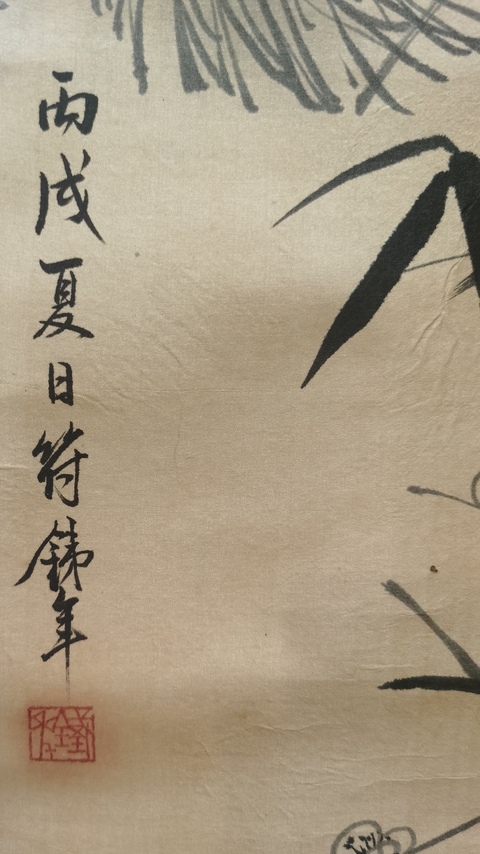 丙戌夏日符銕年